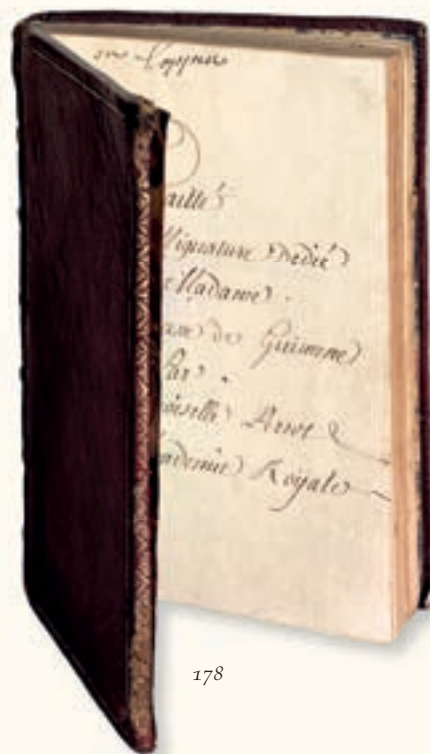 aillé
Mignature Dedié
Madame.
de Guimene
Par.
oiselle Arnot
ademie Royale
178